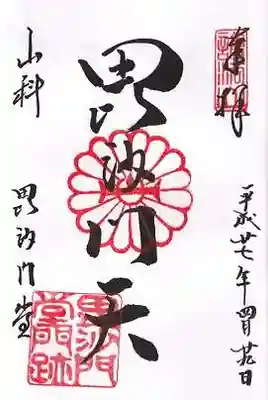 奉拝
平成廿七年四月 日
毘沙門天
毘沙門
堂門跡
山科
毘沙門堂